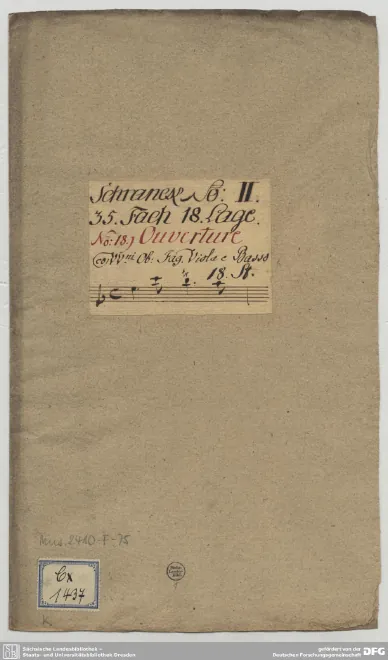 Schranck No: II.
35. Fach 18. Lage.
No: 18.) Ouverture
co VVni Ob. Fag. Viola e Basso
18. St.
Mus. 2410-F-75
Cx
1437
Sächsische Landesbibliothek –
Staats- und Universitätsbibliothek Dresden
gefördert von der
Deutschen Forschungsgemeinschaft DFG